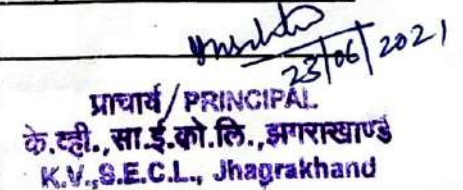 23/06/2021
प्राचार्य / PRINCIPAL
के.व्ही.,सा.ई.को.लि.,झगराखाण्ड
K.V.,S.E.C.L., Jhagrakhand